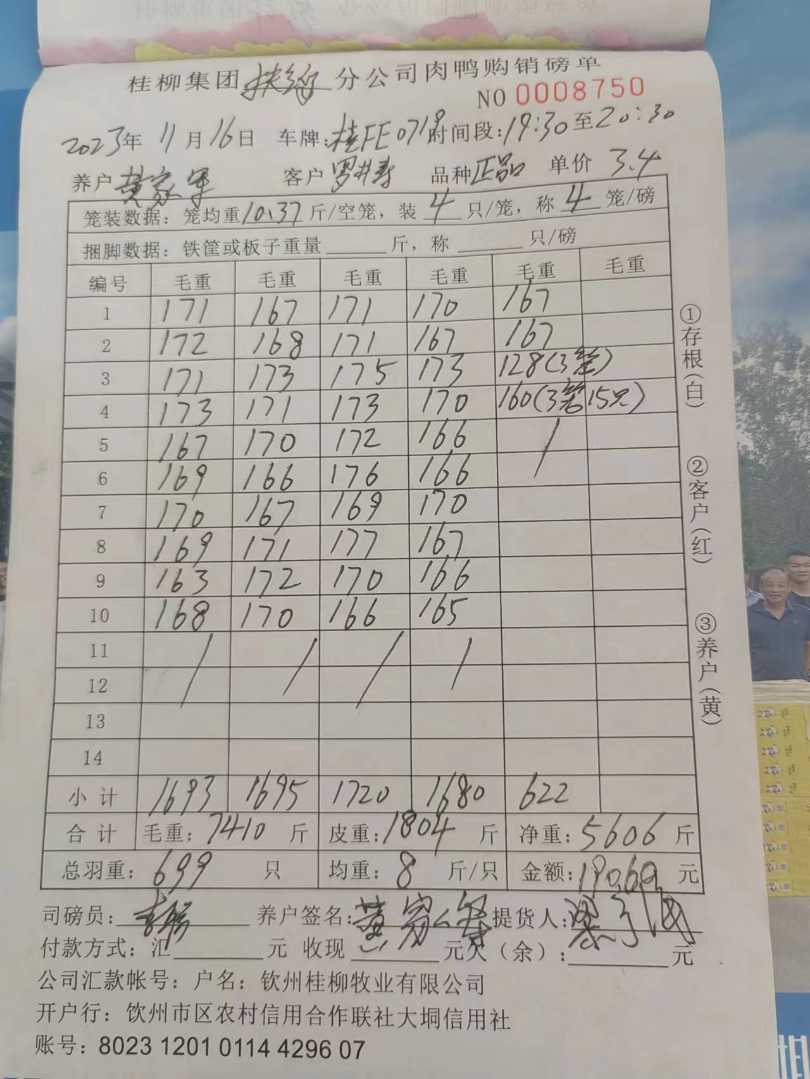 桂柳集团 扶绥 分公司肉鸭购销磅单
NO 0008750
2023年 11月16日 车牌:桂FE0719 时间段:19:30至20:30
养户 黄家军 客户 罗井寿 品种 正品 单价 3.4
笼装数据: 笼均重10.37斤/空笼, 装 4 只/笼, 称 4 笼/磅
捆脚数据: 铁筐或板子重量 斤, 称 只/磅
编号 毛重 毛重 毛重 毛重 毛重 毛重
1 171 167 171 170 167
2 172 168 171 167 167
3 171 173 175 173 128(3笼)
4 173 171 173 170 160(3笼15只)
5 167 170 172 166 /
6 169 166 176 166
7 170 167 169 170
8 169 171 177 167
9 163 172 170 166
10 168 170 166 165
11 / / / /
12
13
14
小计 1693 1695 1720 1680 622
合计 毛重: 7410 斤 皮重: 1804 斤 净重: 5606 斤
总羽重: 699 只 均重: 8 斤/只 金额: 19060 元
司磅员: 养户签名: 黄 提货人:
付款方式: 汇 元 收现 元 欠(余): 元
公司汇款帐号: 户名: 钦州桂柳牧业有限公司
开户行: 钦州市区农村信用合作联社大垌信用社
账号: 8023 1201 0114 4296 07
①存根(白)
②客户(红)
③养户(黄)